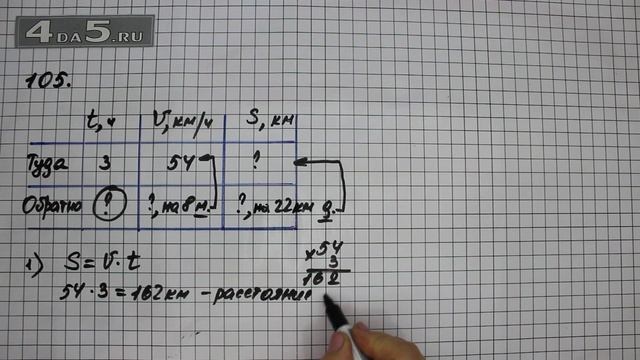 4DA5.RU
105.
t, ч V, км/ч S, км
Туда 3 54 ?
Обратно ? ?, на 8 м. ?, на 22 км д.
1) S = V · t
54 · 3 = 162 км - расстояние
× 54
3
162